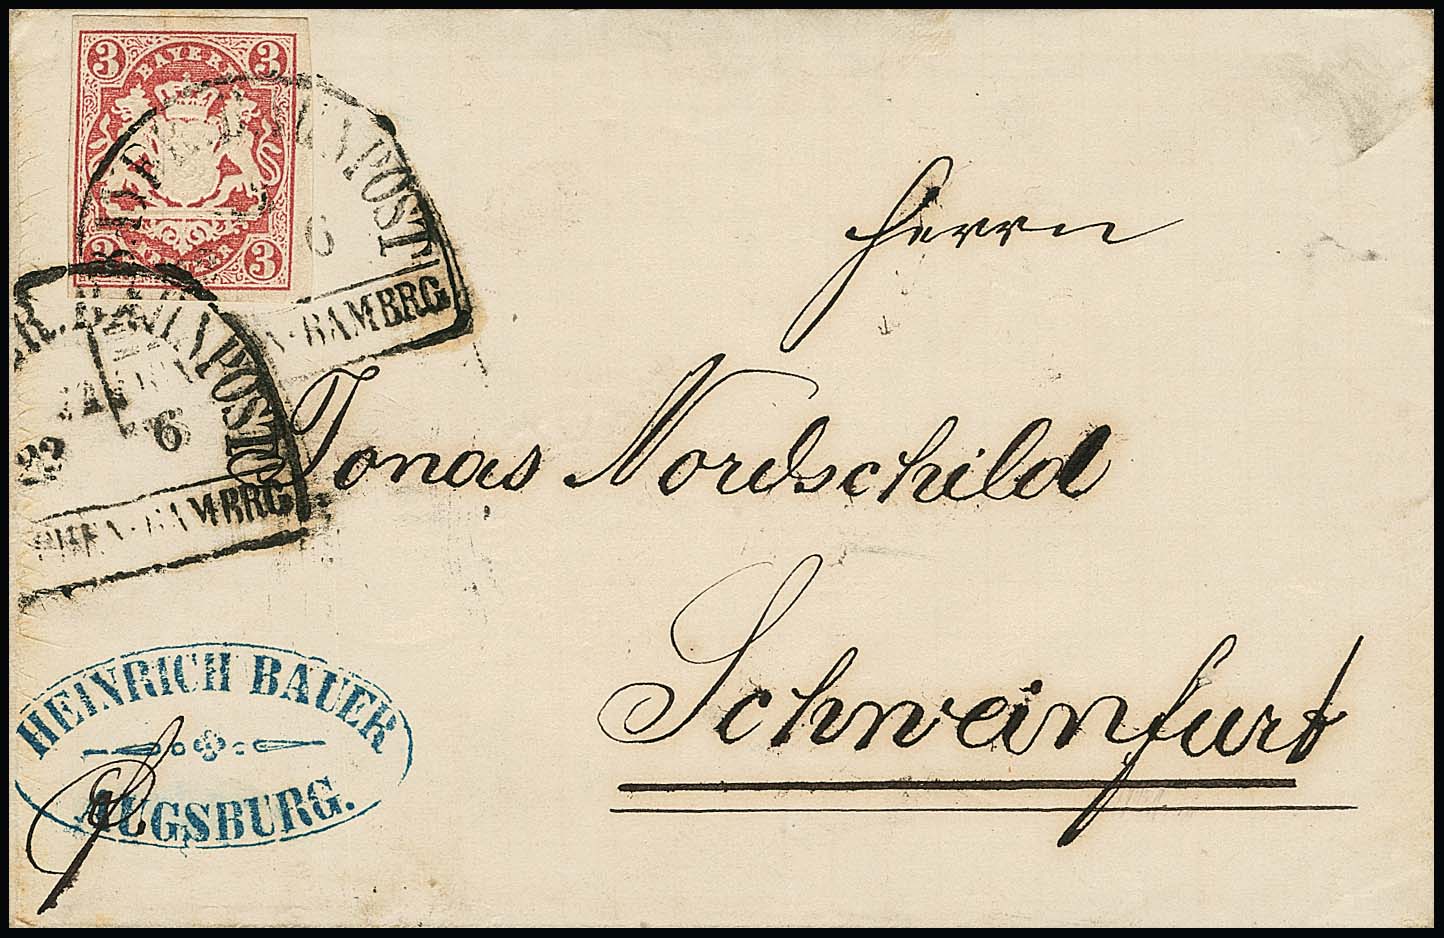 3 3
BAYERN
3 3
BAYER. BAHNPOST
6
-BAMBRG
ER. BAHNPOST
22 6
CHEN-BAMBRG
Herrn
Jonas Nordschild
Schweinfurt
HEINRICH BAUER
AUGSBURG.